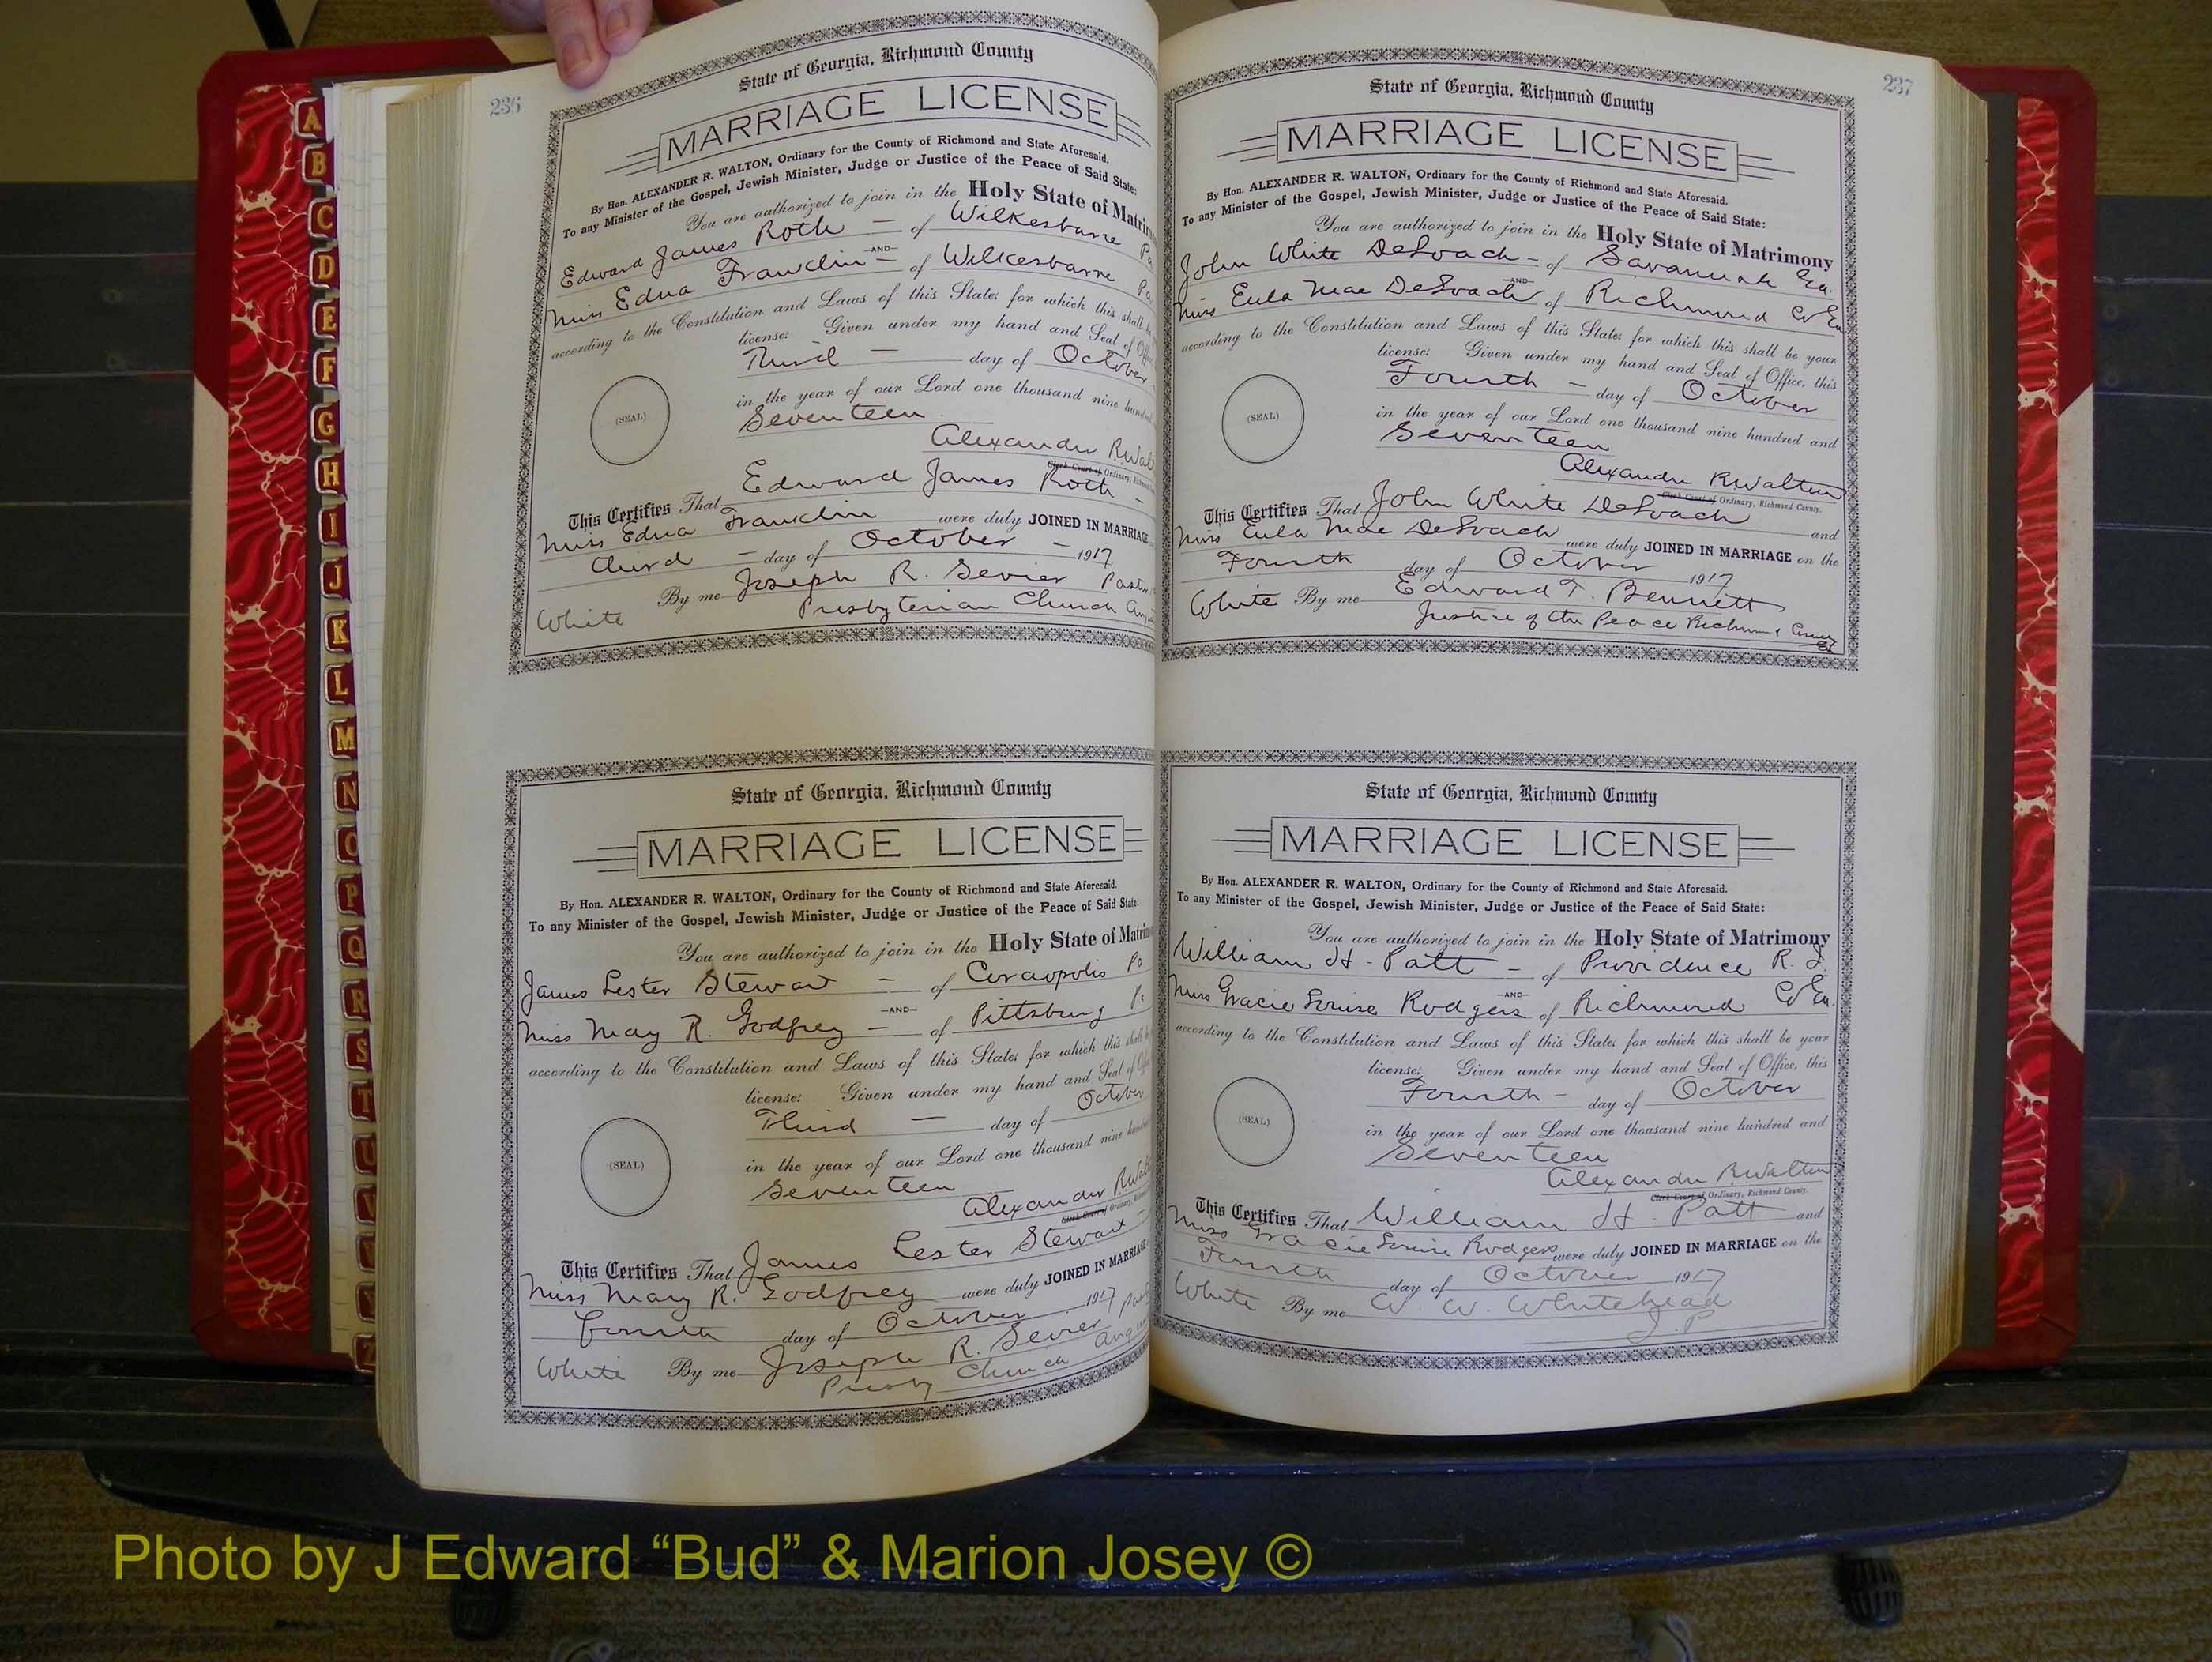 236
State of Georgia, Richmond County
MARRIAGE LICENSE
By Hon. ALEXANDER R. WALTON, Ordinary for the County of Richmond and State Aforesaid.
To any Minister of the Gospel, Jewish Minister, Judge or Justice of the Peace of Said State:
You are authorized to join in the Holy State of Matrim
Edward James Roth — of Wilkesbarre Pa
—AND—
Miss Edna Franklin — of Wilkesbarre Pa
according to the Constitution and Laws of this State; for which this shall b
license: Given under my hand and Seal of Offi
Third — day of October
in the year of our Lord one thousand nine hundred
Seventeen
(SEAL)
Alexander R Wal
Clerk Court of Ordinary, Richmond
This Certifies That Edward James Roth —
Miss Edna Franklin were duly JOINED IN MARRIAGE
third — day of October — 1917
White By me Joseph R. Sevier Pastor
Presbyterian Church
State of Georgia, Richmond County
MARRIAGE LICENSE
By Hon. ALEXANDER R. WALTON, Ordinary for the County of Richmond and State Aforesaid.
To any Minister of the Gospel, Jewish Minister, Judge or Justice of the Peace of Said State:
You are authorized to join in the Holy State of Matrim
James Lester Stewart — of Coraopolis Pa
—AND—
Miss May R. Godfrey — of Pittsburg Pa
according to the Constitution and Laws of this State; for which this shall
license: Given under my hand and Seal of Offi
Third — day of October
in the year of our Lord one thousand nine hundred
Seventeen
(SEAL)
Alexander R Walt
Clerk Court of Ordinary,
This Certifies That James Lester Stewart —
Miss Mary R. Godfrey were duly JOINED IN MARRIAGE
fourth day of October 1917
White By me Joseph R. Sevier
Presby Church
237
State of Georgia, Richmond County
MARRIAGE LICENSE
By Hon. ALEXANDER R. WALTON, Ordinary for the County of Richmond and State Aforesaid.
To any Minister of the Gospel, Jewish Minister, Judge or Justice of the Peace of Said State:
You are authorized to join in the Holy State of Matrimony
John White DeLoach — of Savannah Ga.
—AND—
Miss Eula Mae DeLoach of Richmond Co Ga
according to the Constitution and Laws of this State; for which this shall be your
license: Given under my hand and Seal of Office, this
Fourth — day of October
in the year of our Lord one thousand nine hundred and
Seventeen
(SEAL)
Alexander R Walton
Clerk Court of Ordinary, Richmond County.
This Certifies That John White DeLoach
Miss Eula Mae DeLoach and
were duly JOINED IN MARRIAGE on the
Fourth day of October 1917
White By me Edward T. Bennett
Justice of the Peace Richmond County
State of Georgia, Richmond County
MARRIAGE LICENSE
By Hon. ALEXANDER R. WALTON, Ordinary for the County of Richmond and State Aforesaid.
To any Minister of the Gospel, Jewish Minister, Judge or Justice of the Peace of Said State:
You are authorized to join in the Holy State of Matrimony
William H. Patt — of Providence R. I.
—AND—
Miss Gracie Louise Rodgers of Richmond Co Ga.
according to the Constitution and Laws of this State; for which this shall be your
license: Given under my hand and Seal of Office, this
Fourth — day of October
in the year of our Lord one thousand nine hundred and
Seventeen
(SEAL)
Alexander R Walton
Clerk Court of Ordinary, Richmond County.
This Certifies That William H. Patt and
Miss Gracie Louise Rodgers were duly JOINED IN MARRIAGE on the
Fourth day of October 1917
White By me W. W. Whitehead
J. P.
A
B
C
D
E
F
G
H
I
J
K
L
M
N
O
P
Q
R
S
T
U
V
Z
Photo by J Edward “Bud” & Marion Josey ©